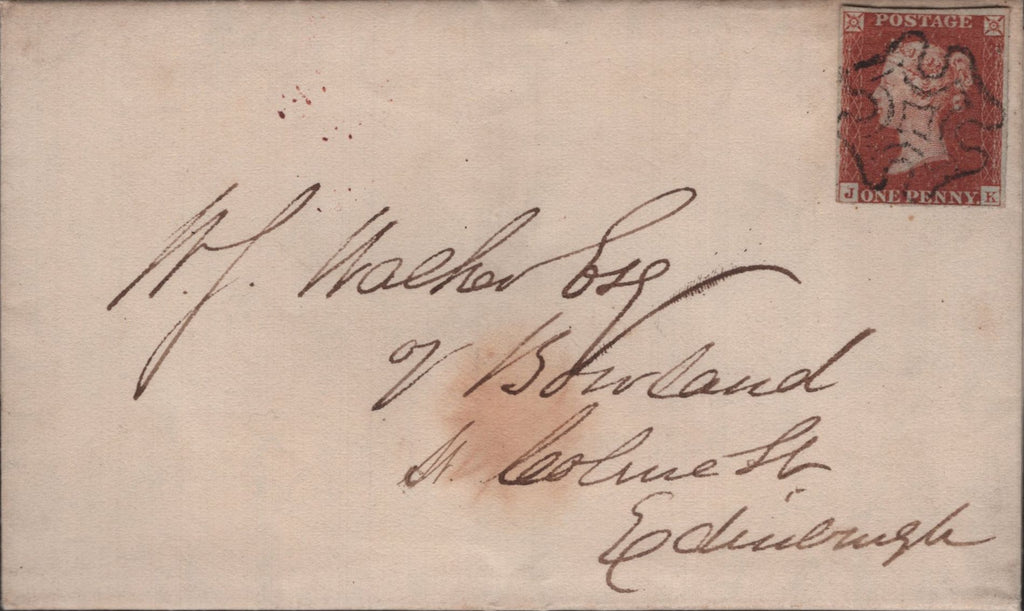 POSTAGE
J ONE PENNY. K
W. J. Walker Esq
of Bowland
St. Colme St
Edinburgh